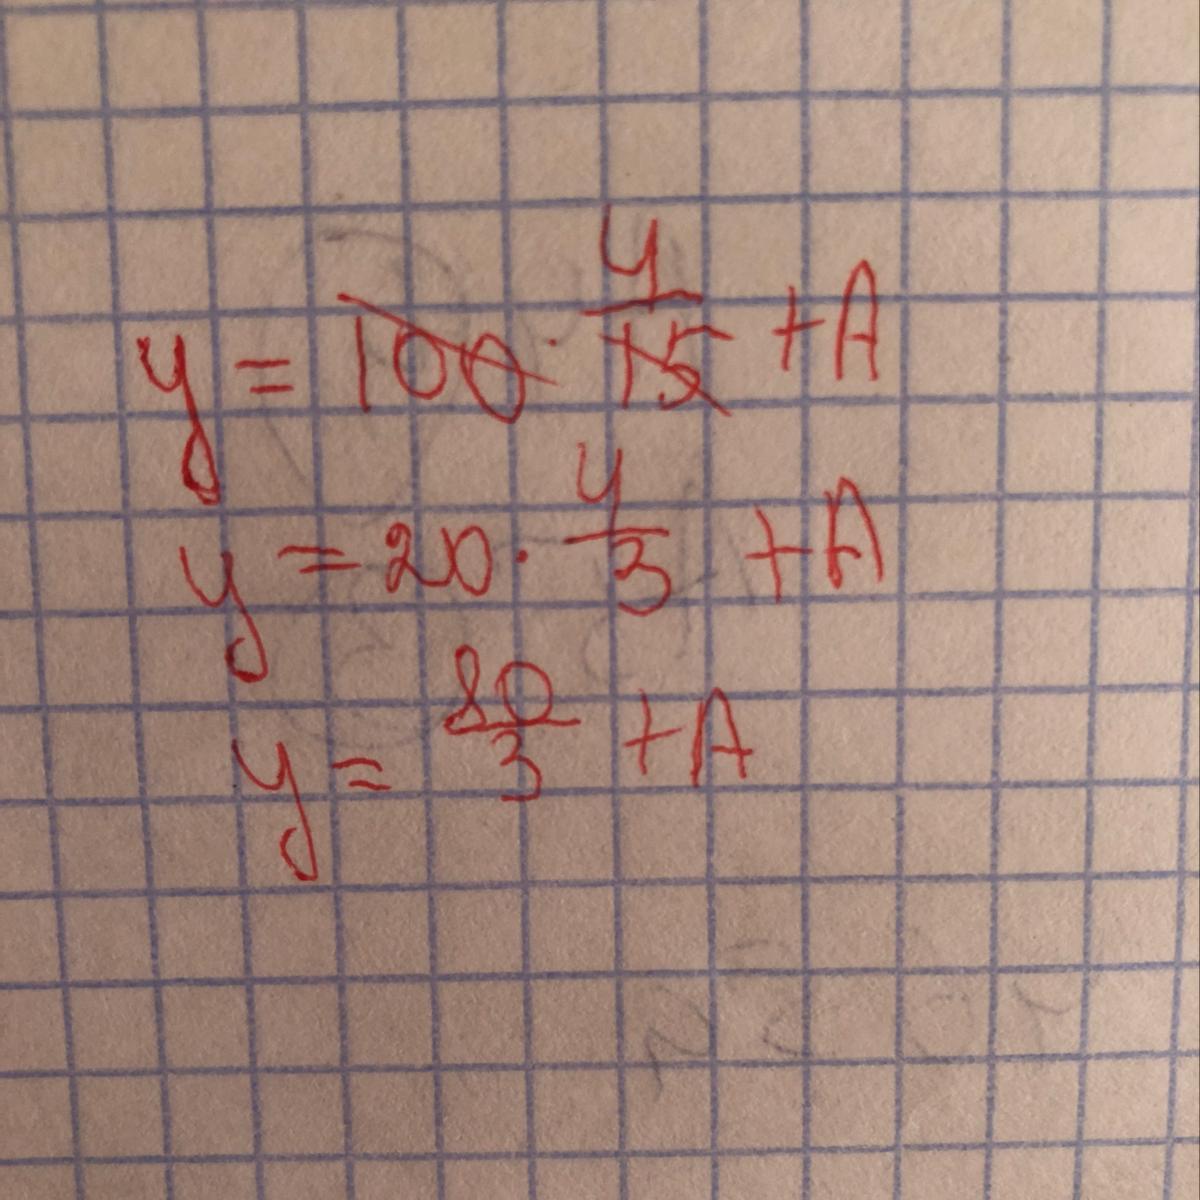 y = 100 · 4/15 + A
y = 20 · 4/3 + A
y = 80/3 + A